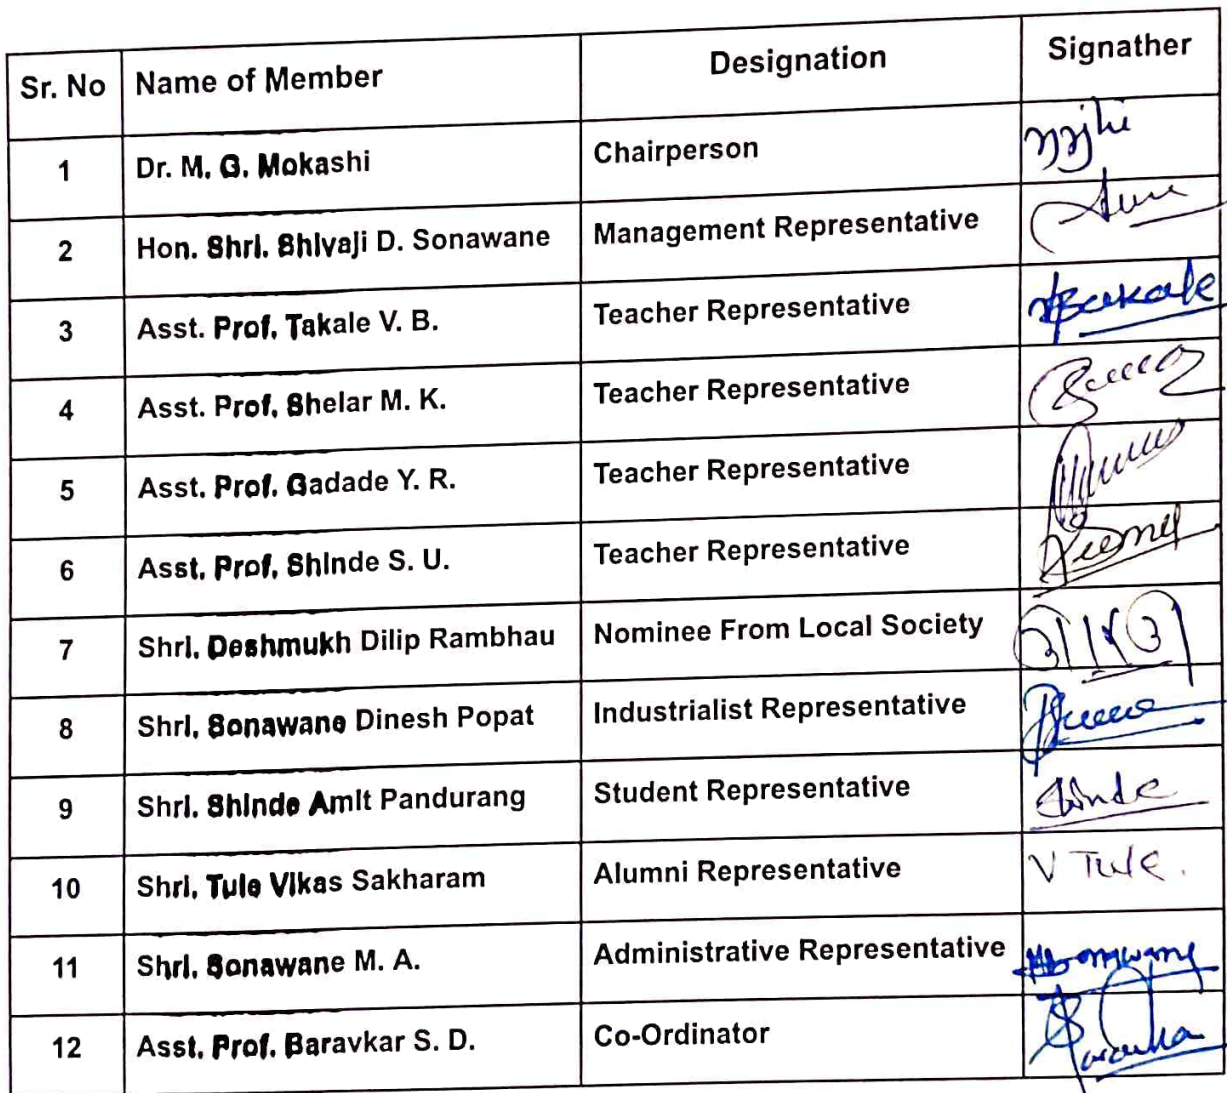 Sr. No Name of Member Designation Signather
1 Dr. M. G. Mokashi Chairperson
2 Hon. Shri. Shivaji D. Sonawane Management Representative
3 Asst. Prof. Takale V. B. Teacher Representative
4 Asst. Prof. Shelar M. K. Teacher Representative
5 Asst. Prof. Gadade Y. R. Teacher Representative
6 Asst. Prof. Shinde S. U. Teacher Representative
7 Shri. Deshmukh Dilip Rambhau Nominee From Local Society
8 Shri. Sonawane Dinesh Popat Industrialist Representative
9 Shri. Shinde Amit Pandurang Student Representative Shinde
10 Shri. Tule Vikas Sakharam Alumni Representative V Tule.
11 Shri. Sonawane M. A. Administrative Representative
12 Asst. Prof. Baravkar S. D. Co-Ordinator